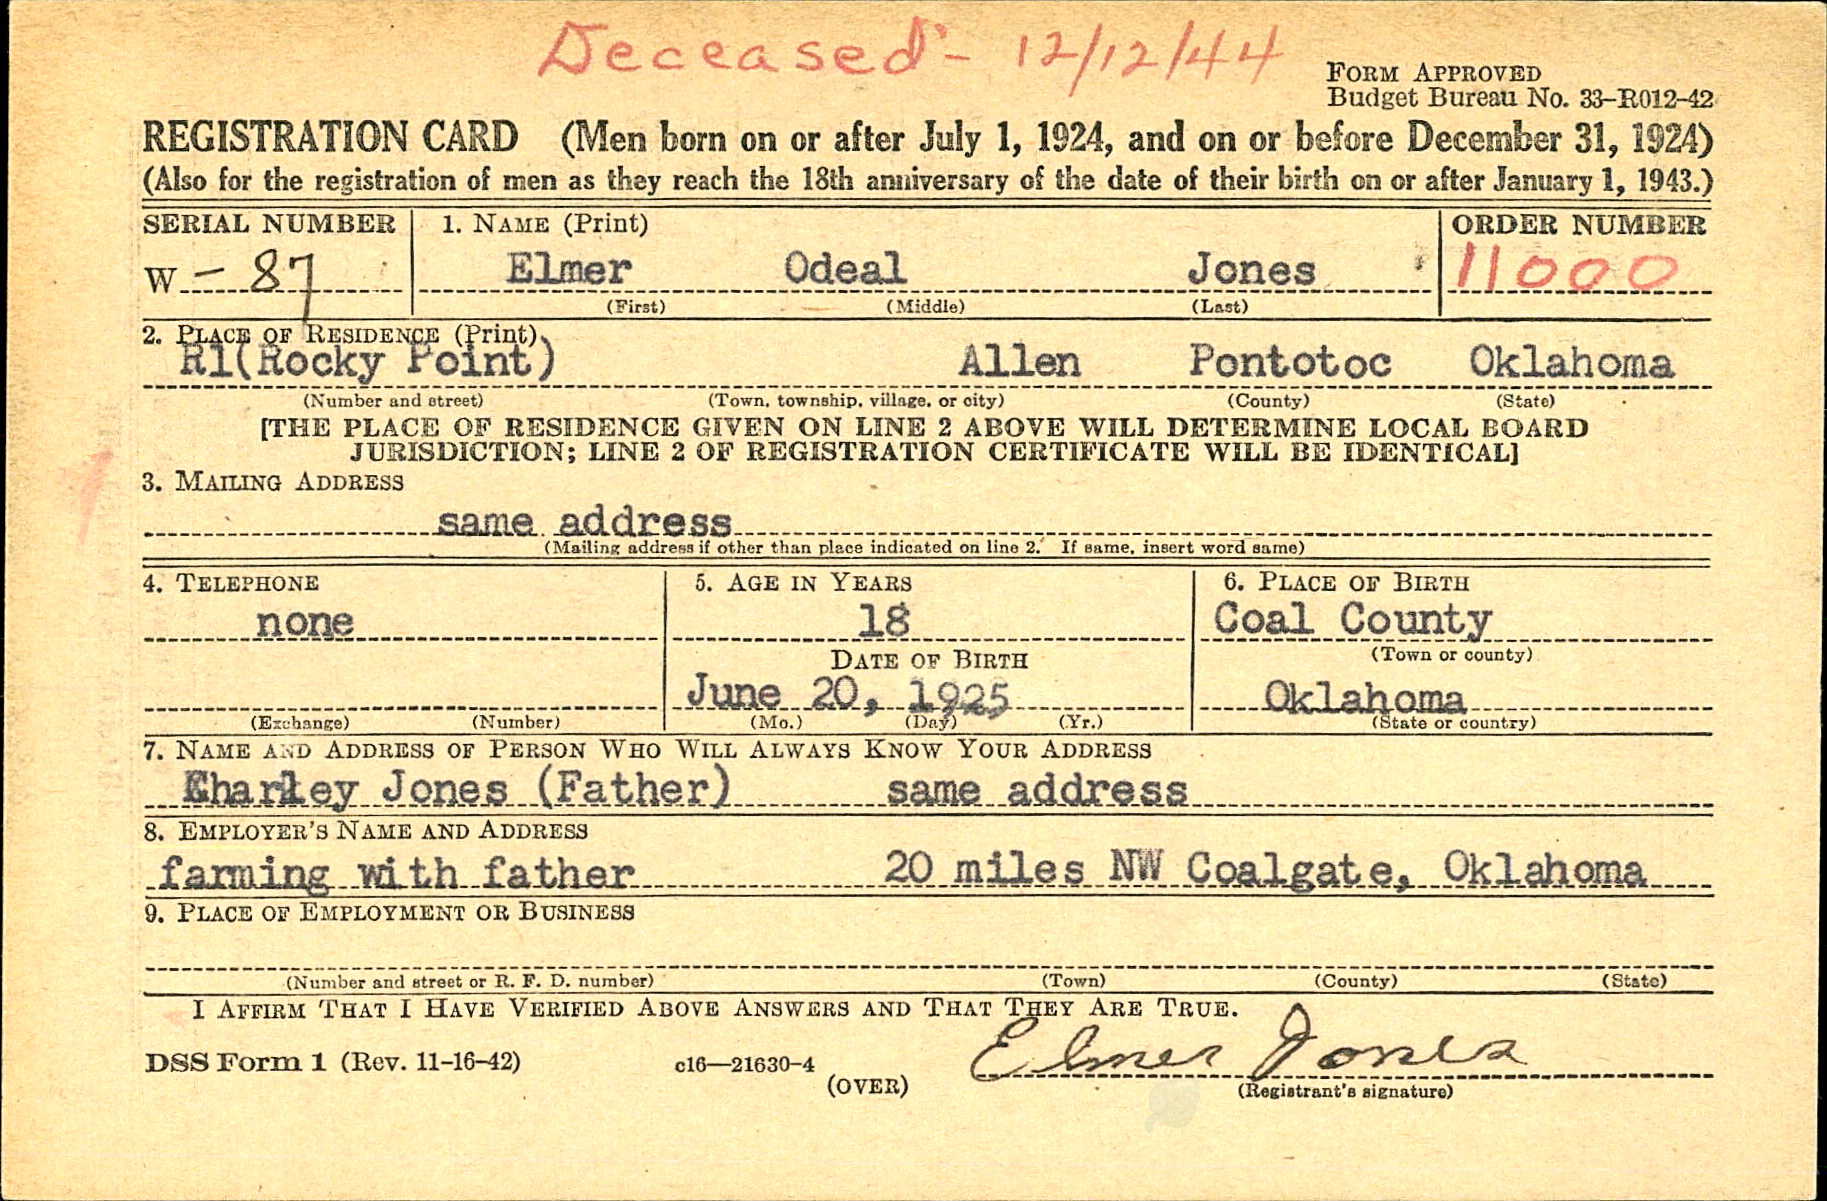 Deceased - 12/12/44
FORM APPROVED
Budget Bureau No. 33-R012-42
REGISTRATION CARD (Men born on or after July 1, 1924, and on or before December 31, 1924)
(Also for the registration of men as they reach the 18th anniversary of the date of their birth on or after January 1, 1943.)
SERIAL NUMBER 1. NAME (Print) ORDER NUMBER
W - 87 Elmer Odeal Jones 11000
(First) (Middle) (Last)
2. PLACE OF RESIDENCE (Print)
R1(Rocky Point) Allen Pontotoc Oklahoma
(Number and street) (Town, township, village, or city) (County) (State)
[THE PLACE OF RESIDENCE GIVEN ON LINE 2 ABOVE WILL DETERMINE LOCAL BOARD
JURISDICTION; LINE 2 OF REGISTRATION CERTIFICATE WILL BE IDENTICAL]
3. MAILING ADDRESS
same address
(Mailing address if other than place indicated on line 2. If same, insert word same)
4. TELEPHONE 5. AGE IN YEARS 6. PLACE OF BIRTH
none 18 Coal County
DATE OF BIRTH (Town or county)
June 20, 1925 Oklahoma
(Exchange) (Number) (Mo.) (Day) (Yr.) (State or country)
7. NAME AND ADDRESS OF PERSON WHO WILL ALWAYS KNOW YOUR ADDRESS
Charley Jones (Father) same address
8. EMPLOYER'S NAME AND ADDRESS
farming with father 20 miles NW Coalgate, Oklahoma
9. PLACE OF EMPLOYMENT OR BUSINESS
(Number and street or R. F. D. number) (Town) (County) (State)
I AFFIRM THAT I HAVE VERIFIED ABOVE ANSWERS AND THAT THEY ARE TRUE.
DSS Form 1 (Rev. 11-16-42) c16—21630-4 Elmer Jones
(OVER) (Registrant's signature)